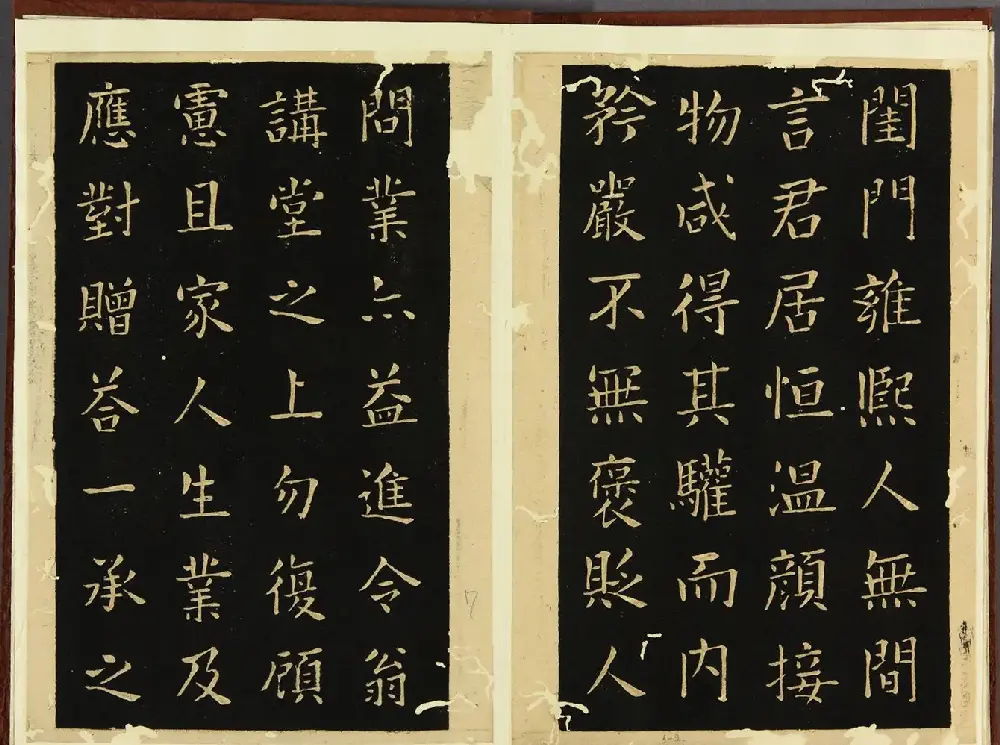 閨門雍熙人無間
言君居恒温顔接
物咸得其驩而内
矜嚴不無褒貶人
問業亦益進令翁
講堂之上勿復顧
慮且家人生業及
應對贈荅一承之